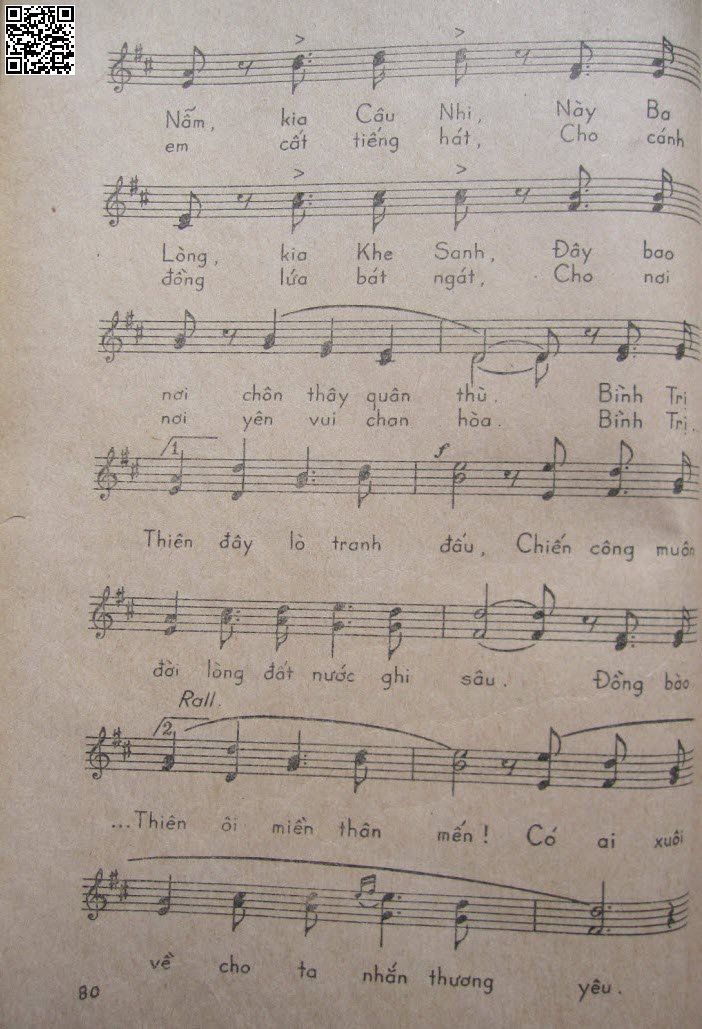 Nấm, kia Câu Nhi, Này Ba
em cất tiếng hát, Cho cánh
Lòng, kia Khe Sanh, Đây bao
đồng lúa bát ngát, Cho nơi
nơi chôn thây quân thù. Bình Trị
nơi yên vui chan hòa. Bình Trị.
1 f
Thiên đây lò tranh đấu, Chiến công muôn
đời lòng đất nước ghi sâu. Đồng bào
Rall.
2
...Thiên ôi miền thân mến! Có ai xuôi
về cho ta nhắn thương yêu.
80